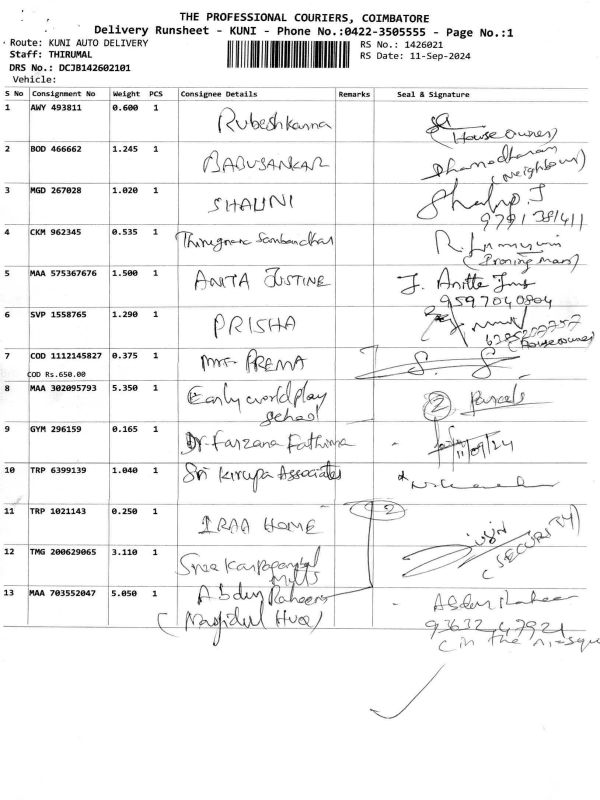 THE PROFESSIONAL COURIERS, COIMBATORE
Delivery Runsheet - KUNI - Phone No.:0422-3505555 - Page No.:1
Route: KUNI AUTO DELIVERY RS No.: 1426021
Staff: THIRUMAL RS Date: 11-Sep-2024
DRS No.: DCJB142602101
Vehicle:
S No Consignment No Weight PCS Consignee Details Remarks Seal & Signature
1 AWY 493811 0.600 1 Rubeshkanna
(House owner)
2 BOD 466662 1.245 1 BABUSANKAR Dhamodharan
(Neighbour)
3 MGD 267028 1.020 1 SHALINI
9791381411
4 CKM 962345 0.535 1 Sambandhar
5 MAA 575367676 1.500 1 ANITA JUSTINE
9597040804
6 SVP 1558765 1.290 1 PRISHA
(House owner)
7 COD 1112145827 0.375 1 PREMA
COD Rs.650.00
8 MAA 302095793 5.350 1 Early world play 2 Parcels
school
9 GYM 296159 0.165 1 Dr. Farzana Fathima - 11/09/24
10 TRP 6399139 1.040 1 Sri Kirupa Associates
11 TRP 1021143 0.250 1 IRAA HOME 2
(SECURITY)
12 TMG 200629065 3.110 1 Sree
Mills
13 MAA 703552047 5.050 1 Abdur Raheem -
(Masjidul Huq) 93632 47921
(in the mosque